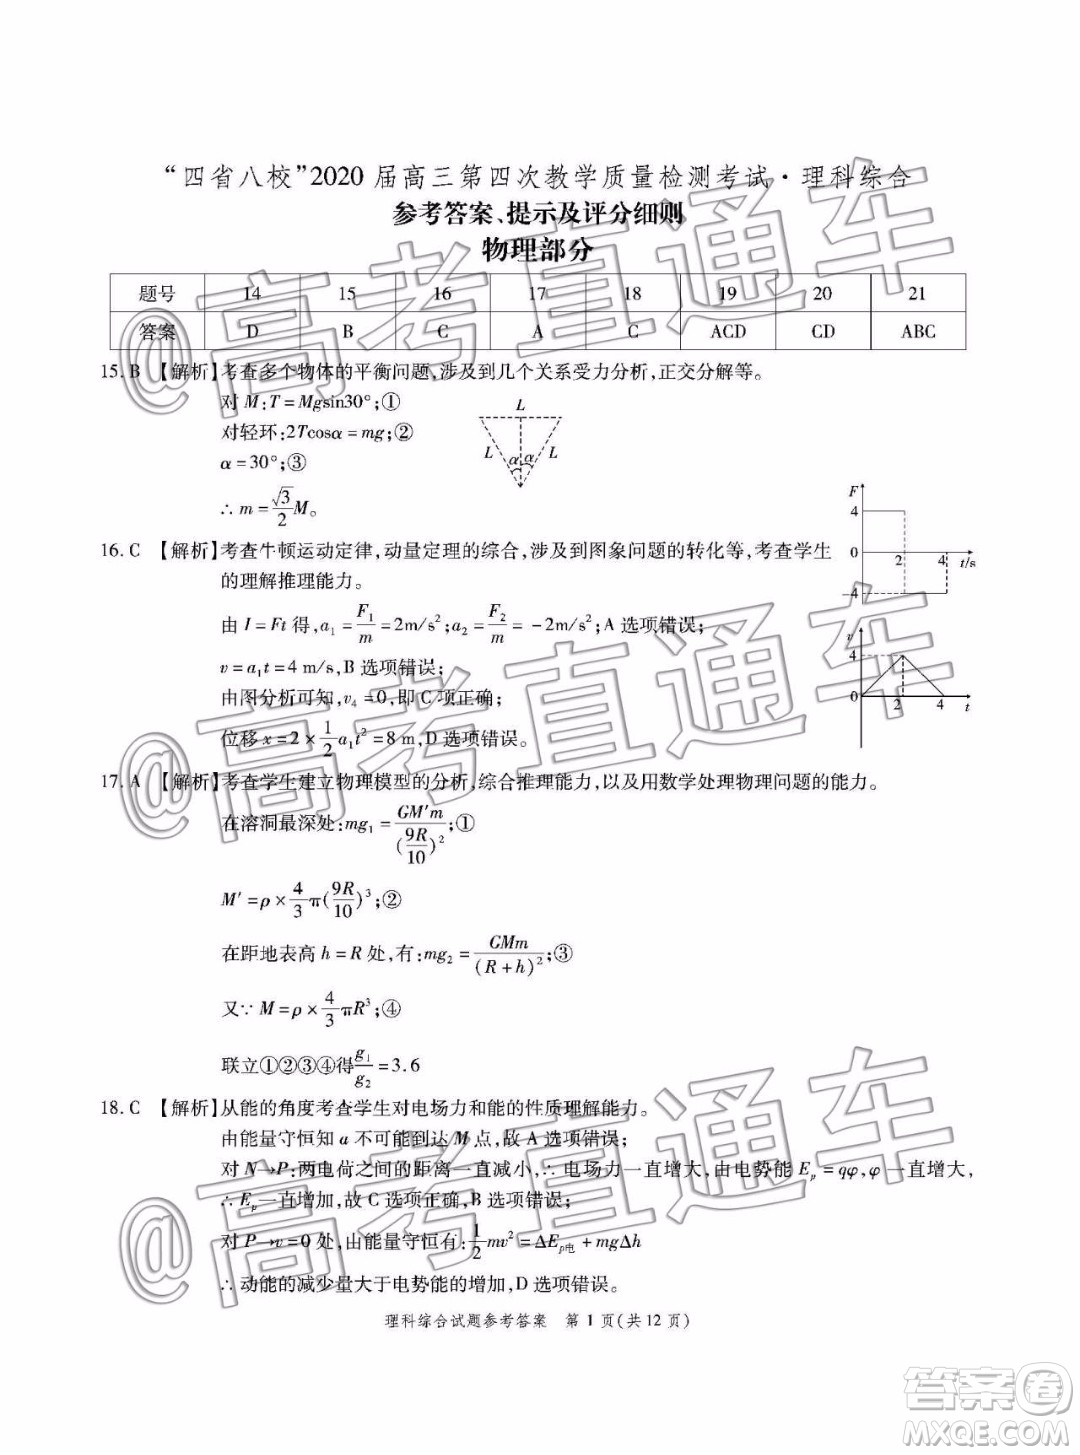 “四省八校”2020 届高三第四次教学质量检测考试·理科综合
参考答案、提示及评分细则
物理部分
题号 14 15 16 17 18 19 20 21
答案 D B C A C ACD CD ABC
15. B 【解析】考查多个物体的平衡问题,涉及到几个关系受力分析,正交分解等。
对 M:T=Mgsin30°;①
对轻环:2Tcosα=mg;②
α=30°;③
∴ m=√3/2 M。
L
L α α L
16. C 【解析】考查牛顿运动定律,动量定理的综合,涉及到图象问题的转化等,考查学生
的理解推理能力。
由 I=Ft 得,a₁=F₁/m=2m/s²;a₂=F₂/m=-2m/s²;A 选项错误;
v=a₁t=4 m/s,B 选项错误;
由图分析可知,v₄=0,即 C 项正确;
位移 x=2×1/2 a₁t²=8 m,D 选项错误。
F
4
0 2 4 t/s
-4
v
4
0 2 4 t
17. A 【解析】考查学生建立物理模型的分析,综合推理能力,以及用数学处理物理问题的能力。
在溶洞最深处:mg₁=GM′m/(9R/10)²;①
M′=ρ×4/3π(9R/10)³;②
在距地表高 h=R 处,有:mg₂=GMm/(R+h)²;③
又∵ M=ρ×4/3πR³;④
联立①②③④得g₁/g₂=3.6
18. C 【解析】从能的角度考查学生对电场力和能的性质理解能力。
由能量守恒知 a 不可能到达 M 点,故 A 选项错误;
对 N→P:两电荷之间的距离一直减小,∴ 电场力一直增大,由电势能 Eₚ=qφ,φ 一直增大,
∴ Eₚ一直增加,故 C 选项正确,B 选项错误;
对 P→v=0 处,由能量守恒有:1/2 mv²=ΔEₚ电+mgΔh
∴ 动能的减少量大于电势能的增加,D 选项错误。
理科综合试题参考答案 第 1 页(共 12 页)
@高考直通车
@高考直通车
@高考直通车
答案卷
MXQE.COM